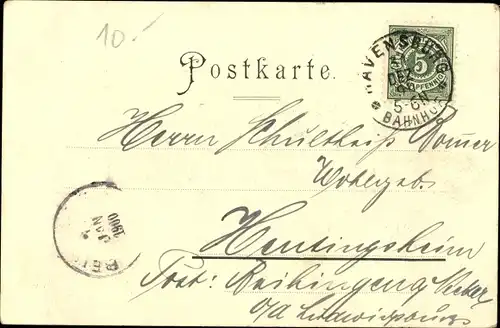 10.-
Postkarte.
RAVENSBURG
DEZ
5-6N
BAHNHOF
5
PFENNIG
Herrn Schultheiß Römer
Wohlgeb.
Heutingsheim
Post: Beihingen a/Neckar
O/A Ludwigsburg
JAN
1900